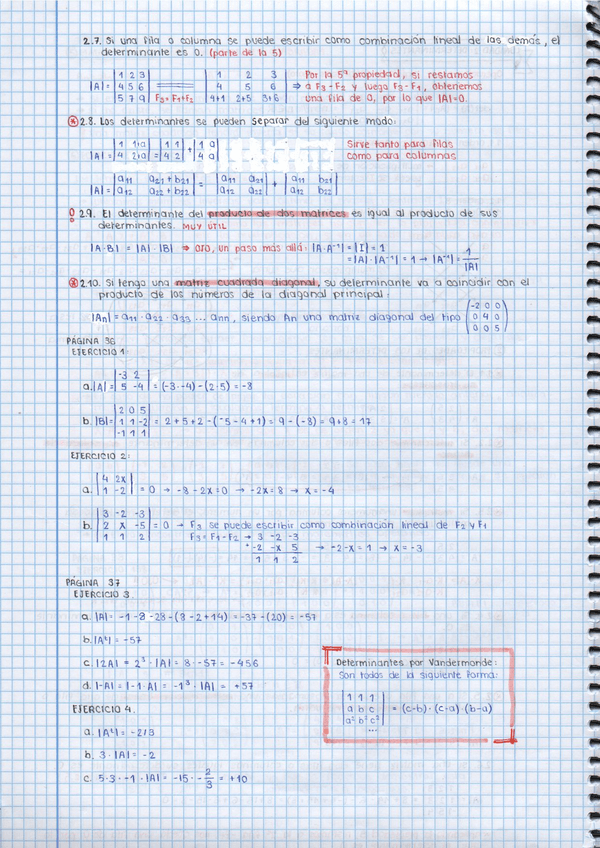 2.7. Si una fila o columna se puede escribir como combinación lineal de las demás, el
determinante es 0. (parte de la 5)
|A| = |1 2 3| = |1 2 3| ⇒ Por la 5ª propiedad, si restamos
|4 5 6| |4 5 6| a F3-F2 y luego F3-F1, obtenemos
|5 7 9| F3=F1+F2 |4+1 2+5 3+6| una fila de 0, por lo que |A|=0.
2.8. Los determinantes se pueden separar del siguiente modo:
|A| = |1 1+a| = |1 1| + |1 a| Sirve tanto para filas
|4 2+a| |4 2| |4 a| como para columnas
|A| = |a11 a21+b21| = |a11 a21| + |a11 b21|
|a12 a22+b22| |a12 a22| |a12 b22|
2.9. El determinante del producto de dos matrices es igual al producto de sus
determinantes. MUY ÚTIL
|A·B| = |A|·|B| ⇒ OJO, un paso más allá: |A·A⁻¹| = |I| = 1
= |A|·|A⁻¹| = 1 → |A⁻¹| = 1/|A|
2.10. Si tengo una matriz cuadrada diagonal, su determinante va a coincidir con el
producto de los numeros de la diagonal principal:
|An| = a11 · a22 · a33 ... ann, siendo An una matriz diagonal del tipo (-2 0 0
0 4 0
0 0 5)
PÁGINA 36
EJERCICIO 1:
a. |A| = |-3 2|
|5 -4| = (-3·-4) - (2·5) = -8
b. |B| = |2 0 5|
|1 1 -2| = 2+5+2-(-5-4+1) = 9-(-8) = 9+8 = 17
|-1 1 1|
EJERCICIO 2:
a. |4 2x|
|1 -2| = 0 → -8-2x=0 → -2x=8 → x=-4
b. |3 -2 -3|
|2 x -5| = 0 → F3 se puede escribir como combinación lineal de F2 y F1
|1 1 2| F3=F1-F2 → 3 -2 -3
-2 -x 5 → -2-x=1 → x=-3
1 1 2
PÁGINA 37
EJERCICIO 3.
a. |A| = -1-8-28-(8-2+14) = -37-(20) = -57
b. |Aᵗ| = -57
c. |2A| = 2³·|A| = 8·-57 = -456
d. |-A| = |-1·A| = -1³·|A| = +57
EJERCICIO 4.
a. |Aᵗ| = -2/3
b. 3·|A| = -2
c. 5·3·-1·|A| = -15·-2/3 = +10
Determinantes por Vandermonde:
Son todos de la siguiente forma:
|1 1 1|
|a b c| = (c-b)·(c-a)·(b-a)
|a² b² c²|
...